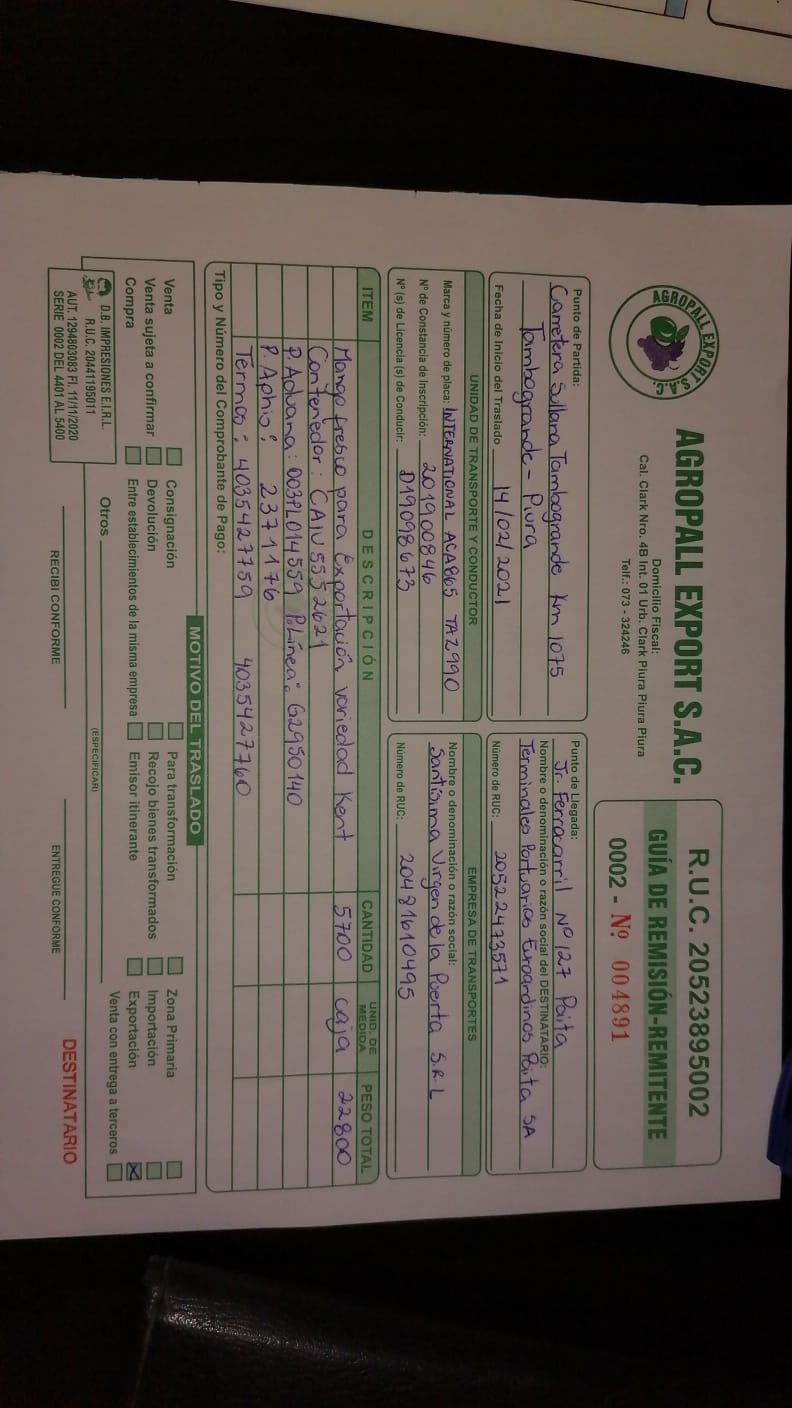 AGROPALL EXPORT S.A.C.
AGROPALL EXPORT S.A.C.
Domicilio Fiscal:
Cal. Clark Nro. 4B Int. 01 Urb. Clark Piura Piura Piura
Telf.: 073 - 324246
R.U.C. 20523895002
GUÍA DE REMISIÓN-REMITENTE
0002 - Nº 004891
Punto de Partida:
Carretera Sullana Tambogrande Km 1075
Tambogrande - Piura
Fecha de Inicio del Traslado 14/02/2021
Punto de Llegada:
Jr. Ferrocarril Nº 127 Paita
Nombre o denominación o razón social del DESTINATARIO:
Terminales Portuarios Euroandinos Paita SA
Número de RUC: 20522473571
UNIDAD DE TRANSPORTE Y CONDUCTOR
Marca y número de placa: INTERNATIONAL ACA865 TAZ990
Nº de Constancia de Inscripción: 201900846
Nº (s) de Licencia (s) de Conducir: D19098673
EMPRESA DE TRANSPORTES
Nombre o denominación o razón social:
Santísima Virgen de la Puerta S.R.L
Número de RUC: 20481610495
ITEM DESCRIPCIÓN CANTIDAD UNID. DE MEDIDA PESO TOTAL
Mango fresco para Exportación variedad Kent 5700 caja 22800
Contenedor: CAIU 5552621
P. Aduana: 003PL014559 P. Línea: G2950140
P. Aphis: 2371176
Termos: 4035427759 4035427760
Tipo y Número del Comprobante de Pago:
MOTIVO DEL TRASLADO
Venta Consignación Para transformación Zona Primaria
Venta sujeta a confirmar Devolución Recojo bienes transformados Importación
Compra Entre establecimientos de la misma empresa Emisor itinerante Exportación
Venta con entrega a terceros
Otros
(ESPECIFICAR)
D.B. IMPRESIONES E.I.R.L.
R.U.C. 20441195011
AUT. 1294803083 FI. 11/11/2020
SERIE 0002 DEL 4401 AL 5400
RECIBI CONFORME
ENTREGUE CONFORME
DESTINATARIO